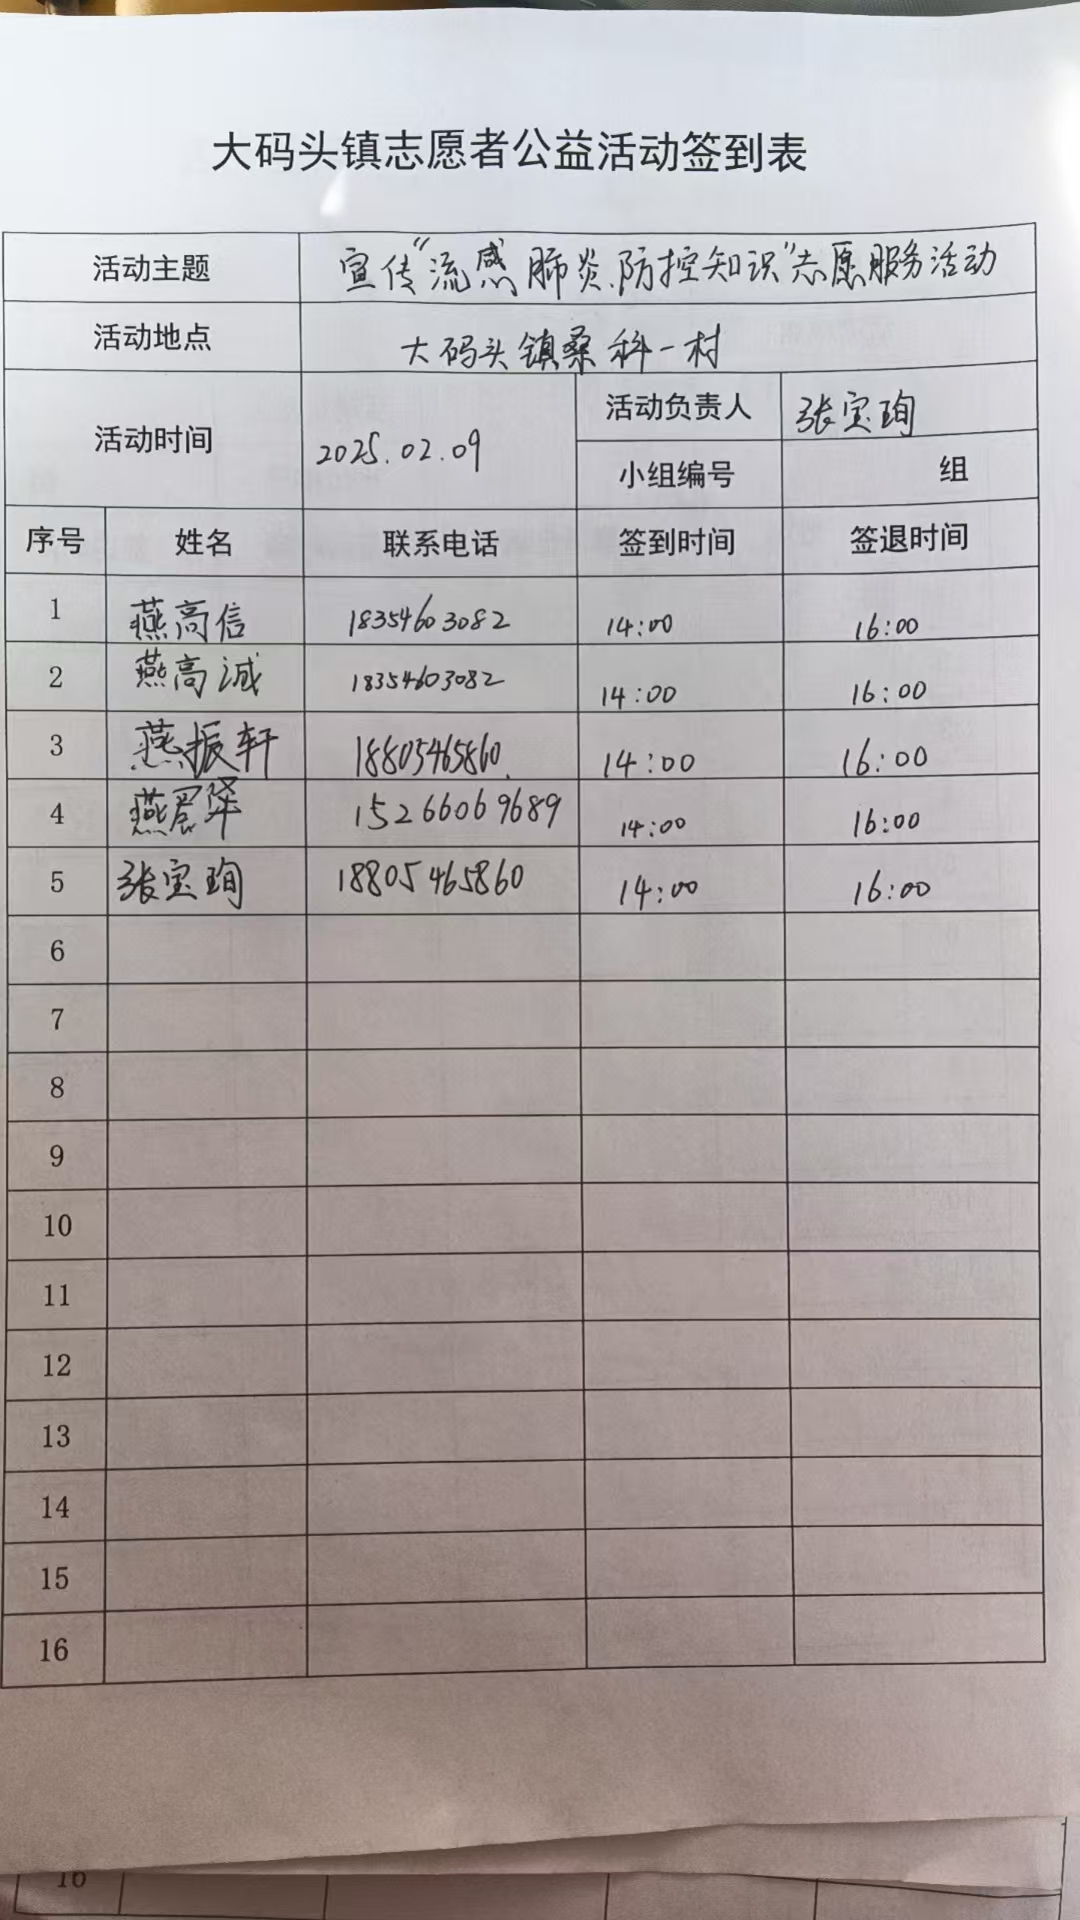 大码头镇志愿者公益活动签到表
活动主题 宣传“流感肺炎防控知识”志愿服务活动
活动地点 大码头镇桑科一村
活动时间 2025.02.09 活动负责人 张宝珣
小组编号 组
序号 姓名 联系电话 签到时间 签退时间
1 燕高信 18354603082 14:00 16:00
2 燕高诚 18354603082 14:00 16:00
3 燕振轩 18805465860. 14:00 16:00
4 燕 15266069689 14:00 16:00
5 张宝珣 18805465860 14:00 16:00
6
7
8
9
10
11
12
13
14
15
16
16